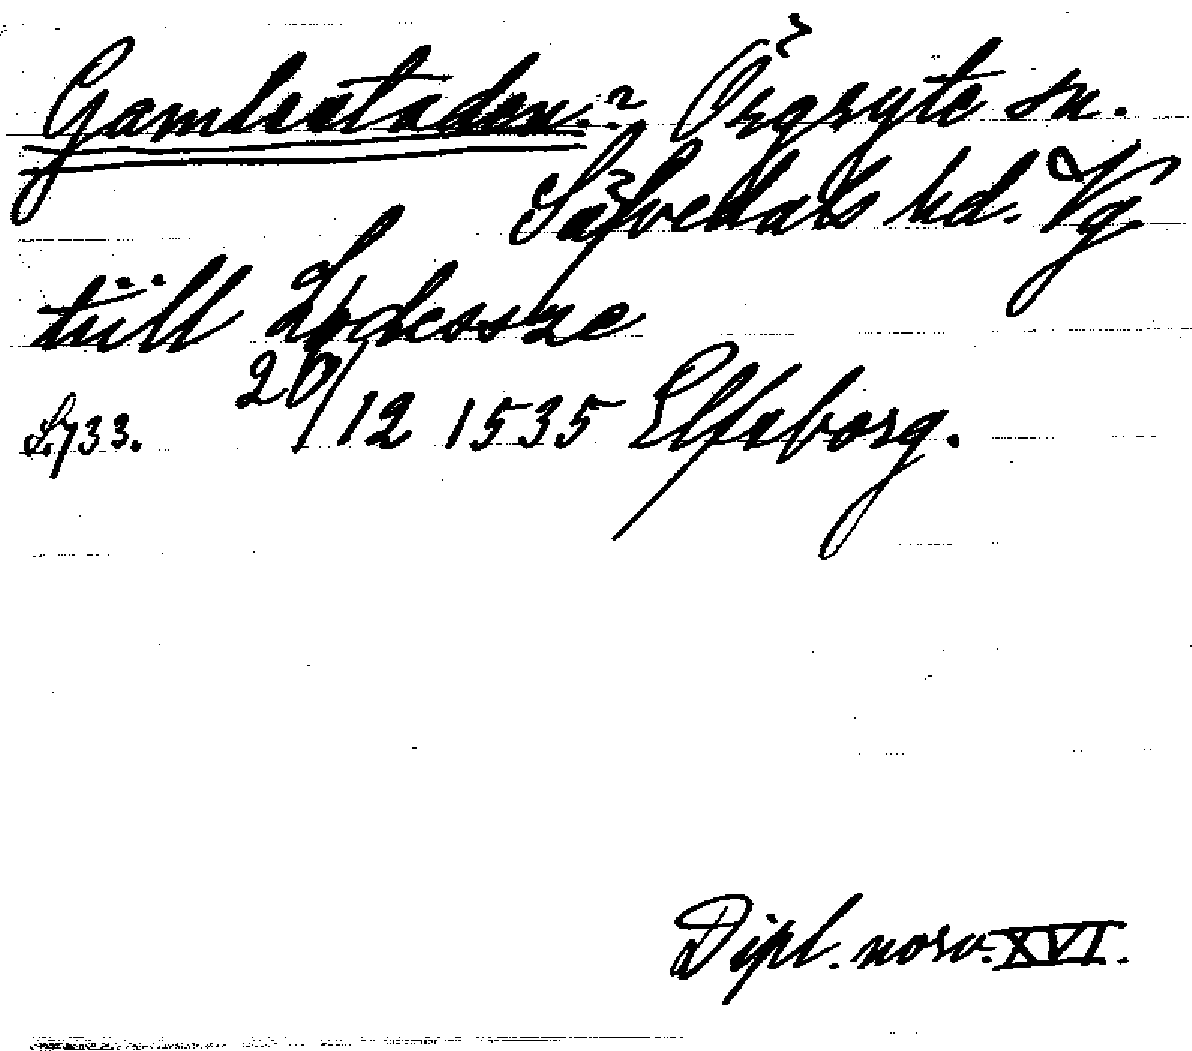 Gamlestaden? Örgryte sn.
Sävedals hd. Vg.
tiill Lødessze
20/12 1535 Elfsborg.
S. 733.
Dipl. norv. XVI.